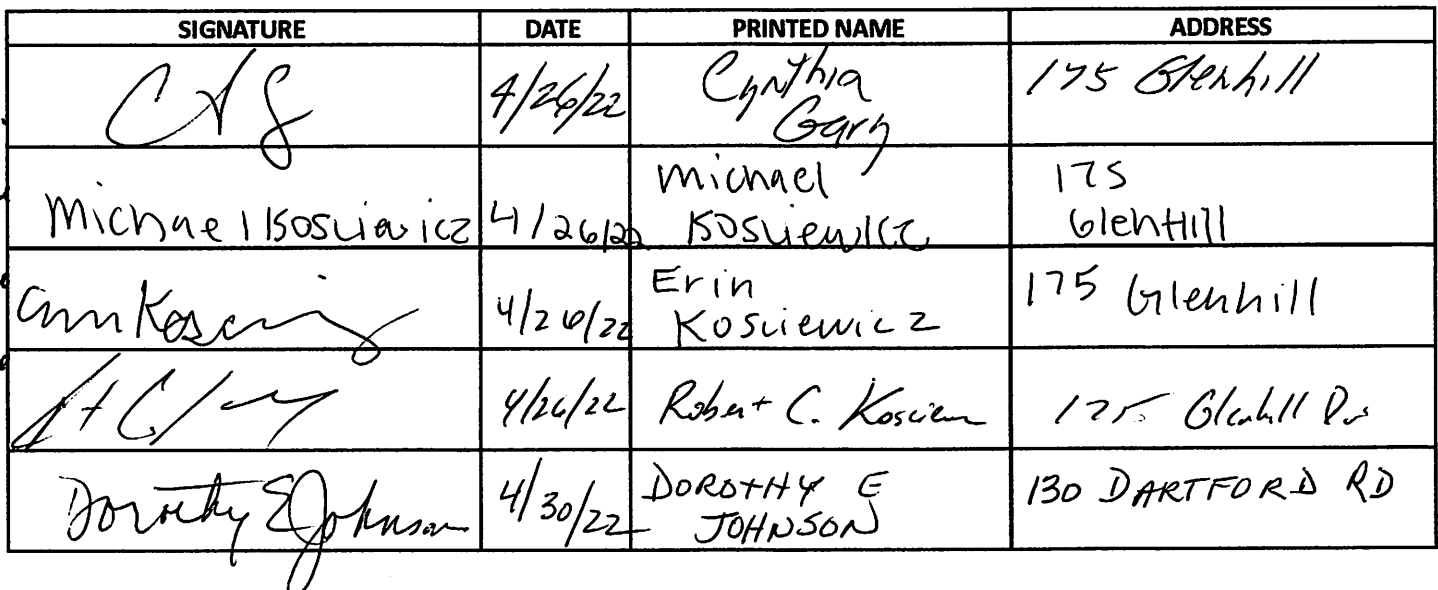 SIGNATURE DATE PRINTED NAME ADDRESS
4/26/22 Cynthia Gary 175 Glenhill
Michael Kosciewicz 4/26/22 Michael Kosciewicz 175 GlenHill
4/26/22 Erin Kosciewicz 175 Glenhill
4/26/22 Robert C. 175 Glenhill Dr
Dorothy E Johnson 4/30/22 DOROTHY E JOHNSON 130 DARTFORD RD